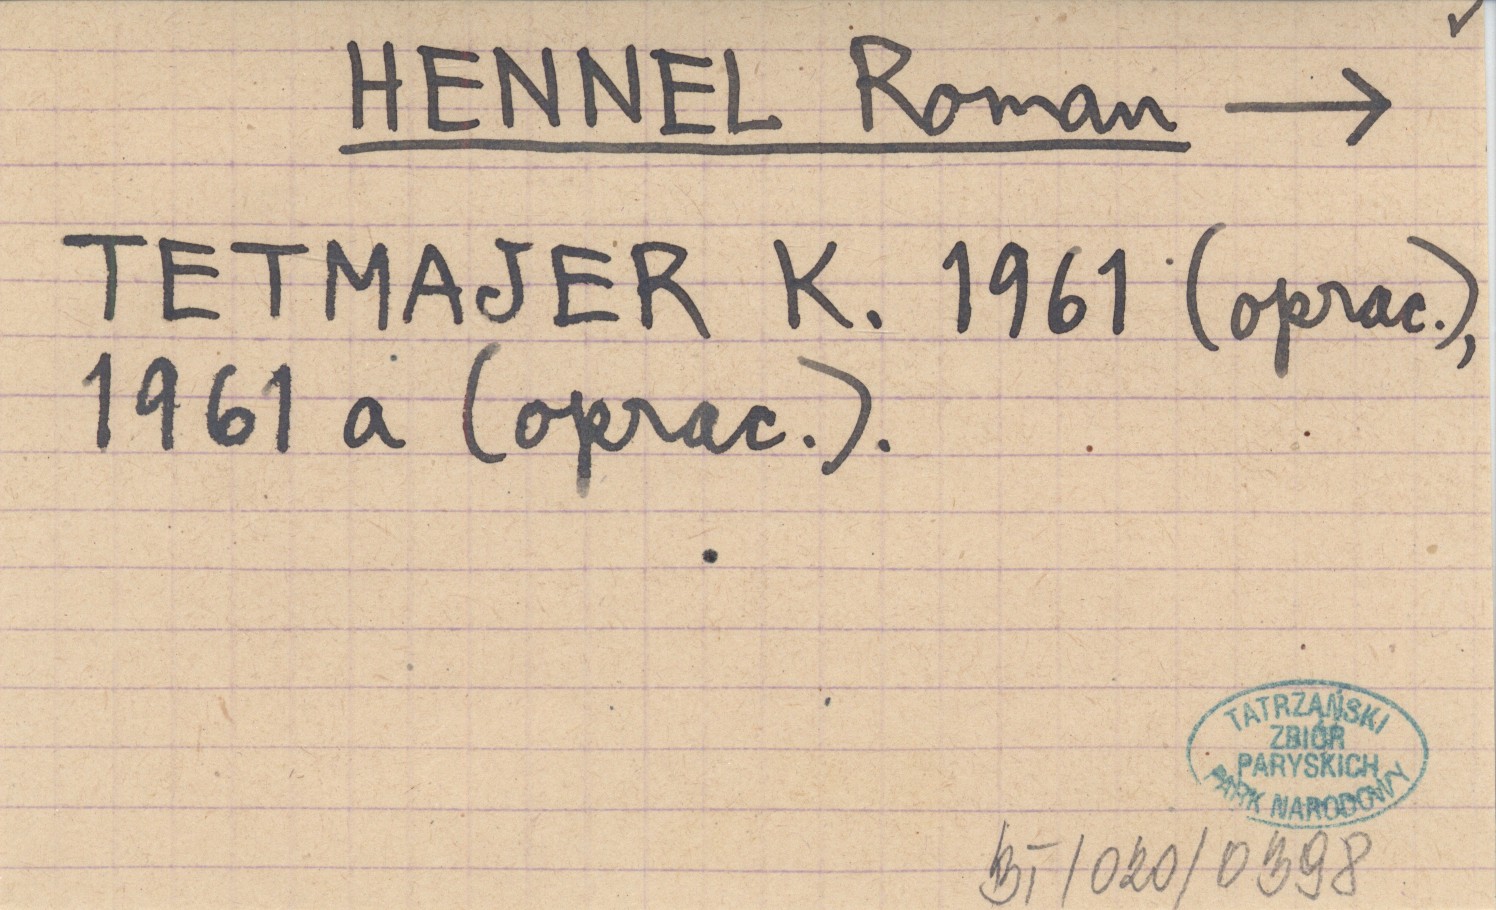 HENNEL Roman →
TETMAJER K. 1961 (oprac.),
1961 a (oprac.).
TATRZAŃSKI
ZBIÓR
PARYSKICH
PARK NARODOWY
BI/020/0398